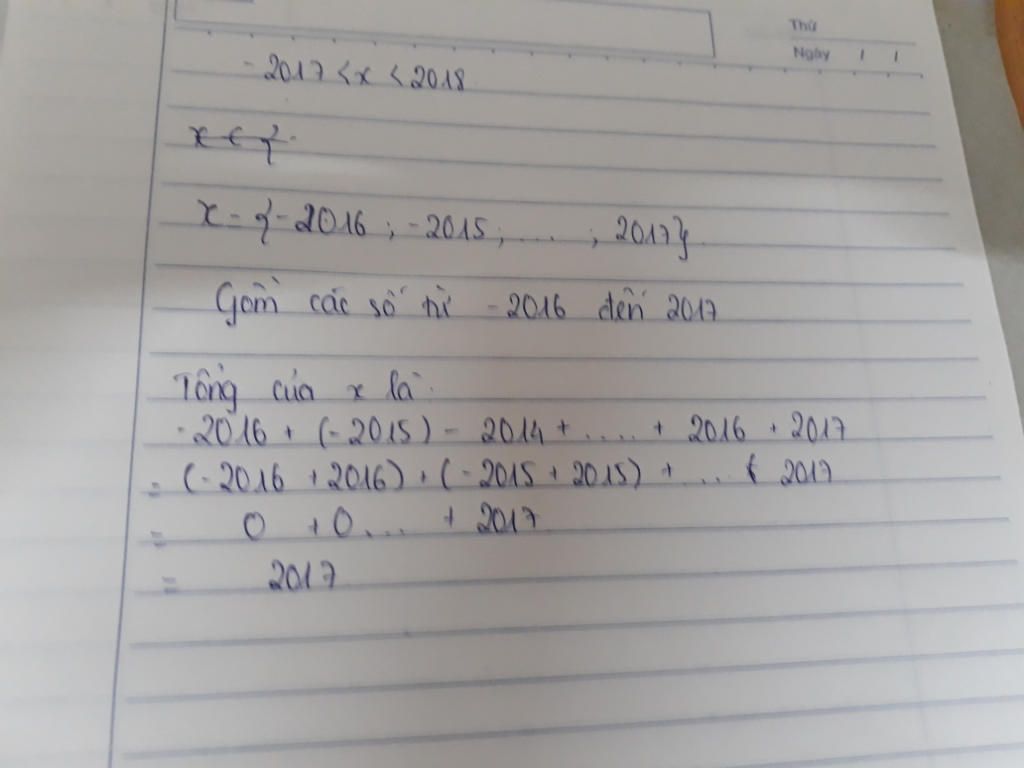 Thứ
Ngày / /
-2017 < x < 2018
x = {-2016 ; -2015; .... ; 2017}
Gồm các số từ -2016 đến 2017
Tổng của x là:
-2016 + (-2015) - 2014 + ..... + 2016 + 2017
= (-2016 + 2016) + (-2015 + 2015) + ... + 2017
= 0 + 0 ... + 2017
= 2017